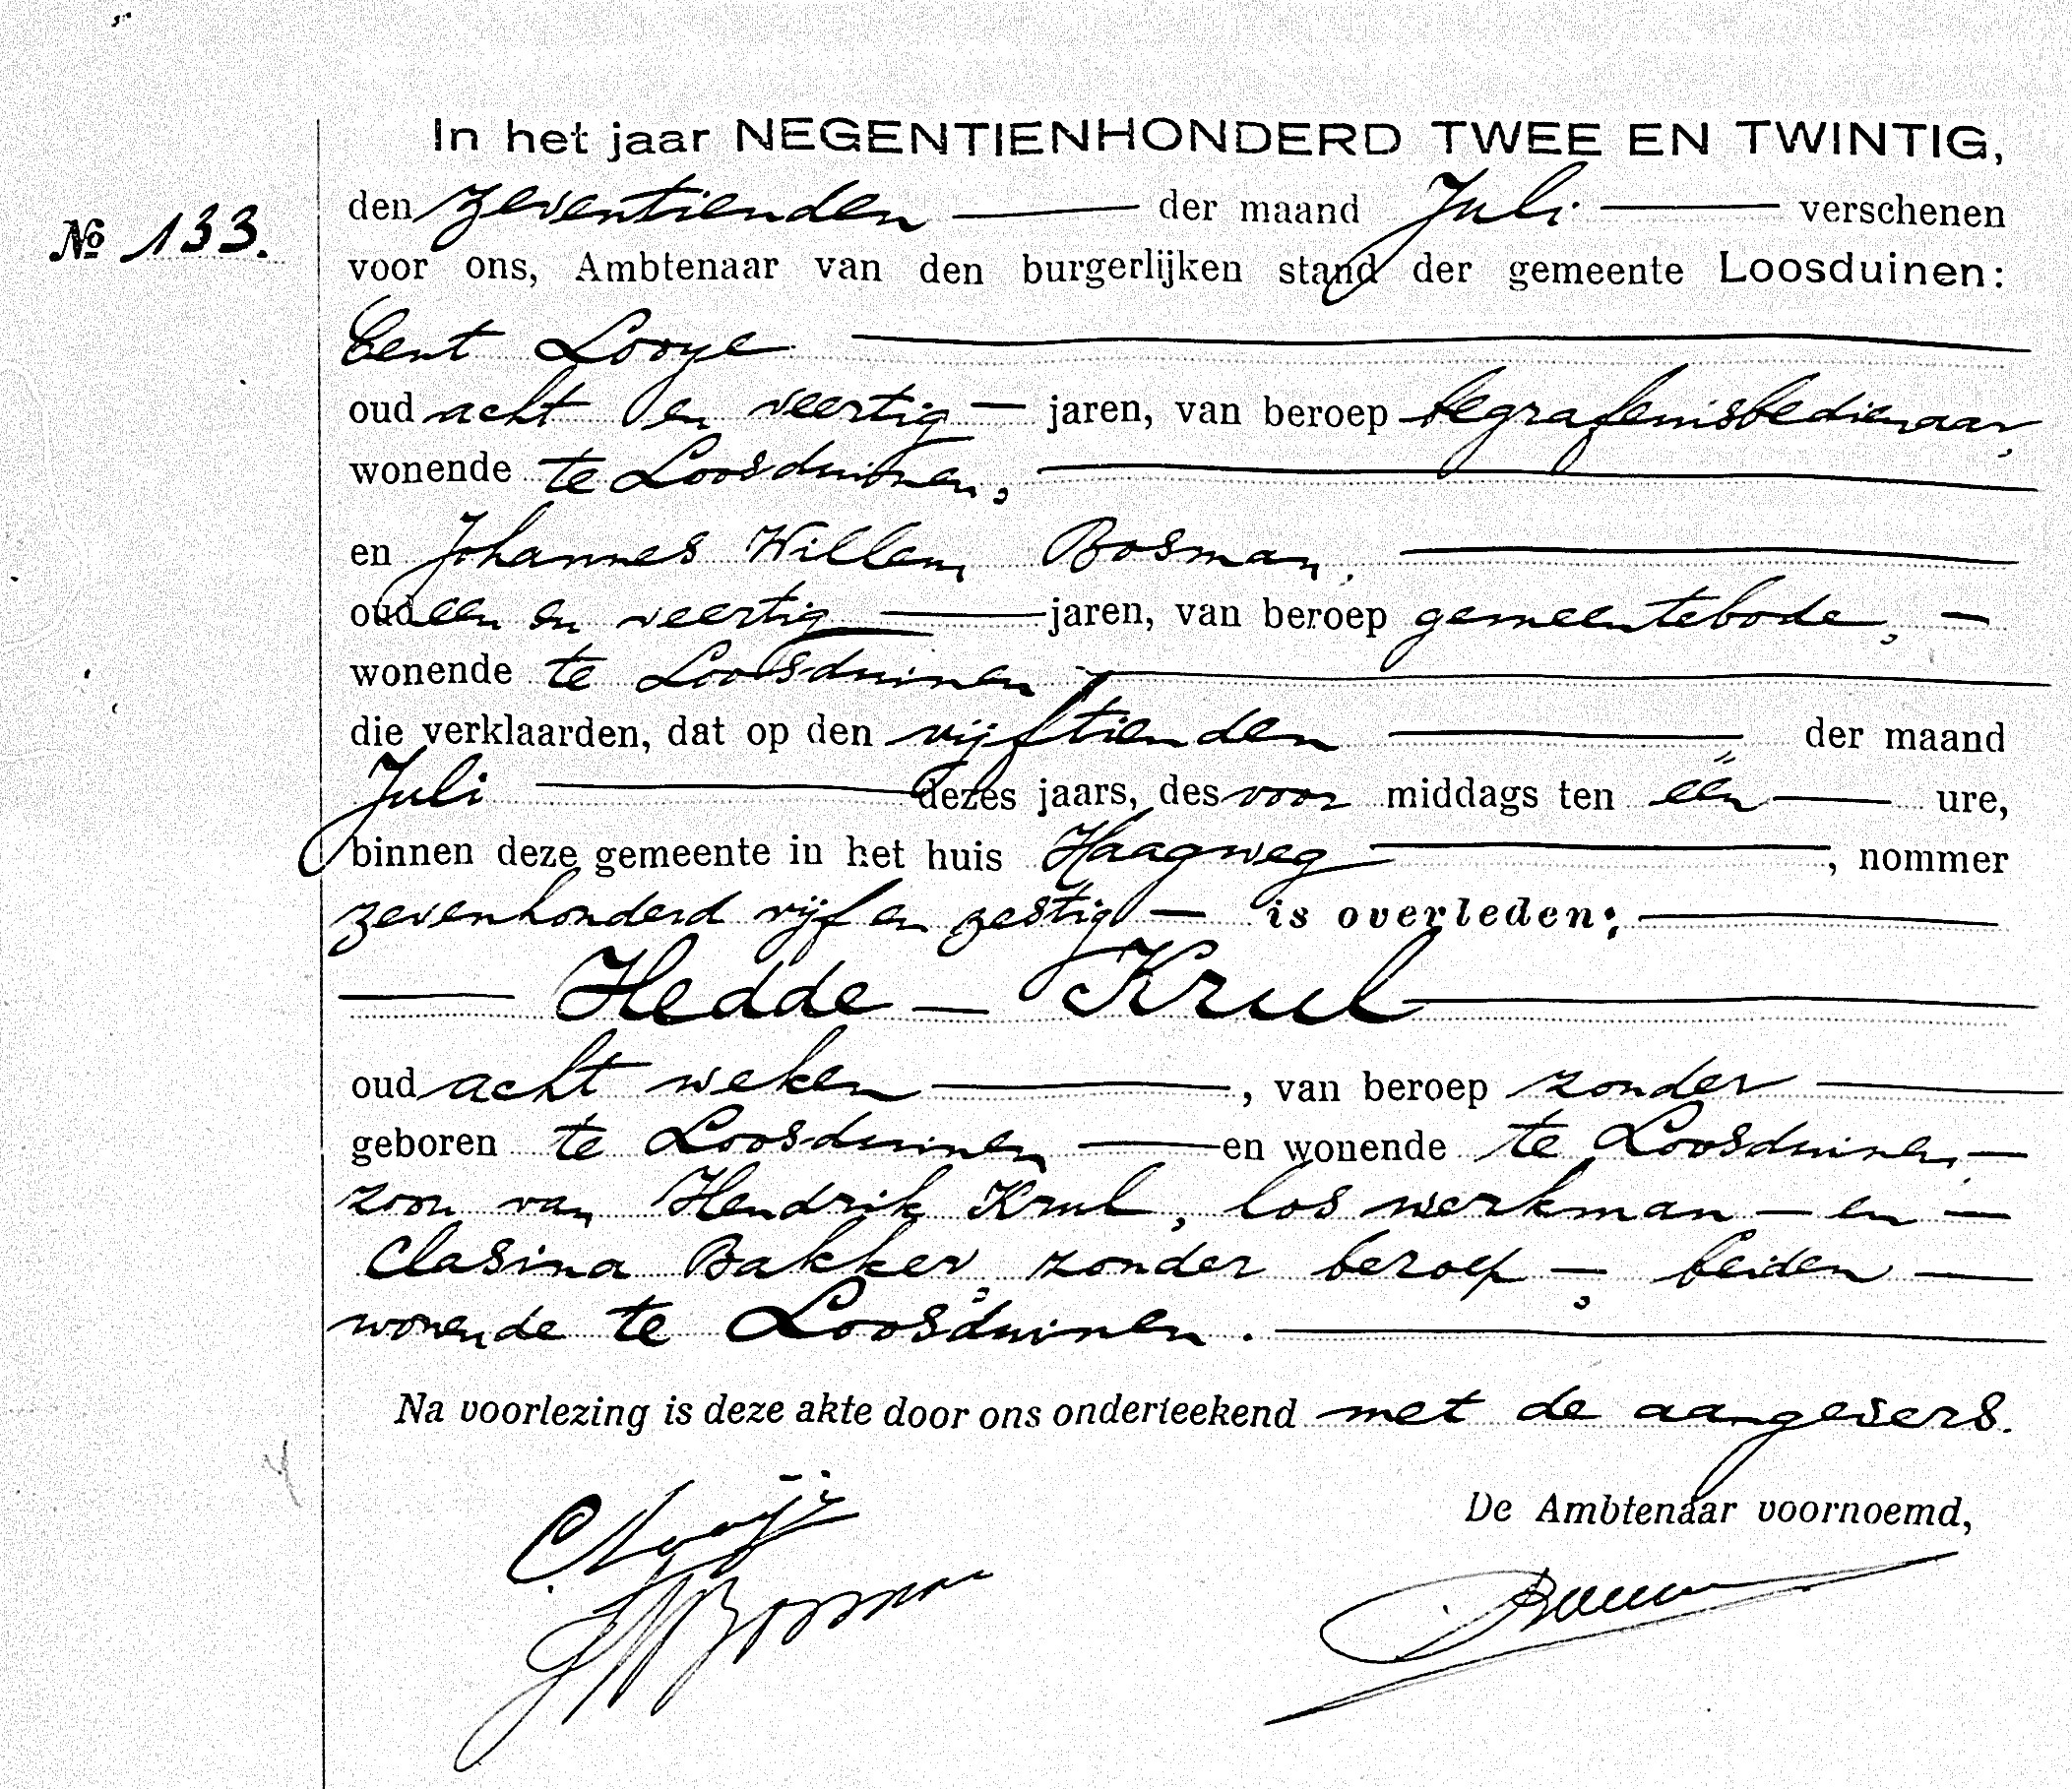 In het jaar NEGENTIENHONDERD TWEE EN TWINTIG,
den zeventienden — der maand Juli — verschenen
№ 133.
voor ons, Ambtenaar van den burgerlijken stand der gemeente Loosduinen:
Cent Looye
oud acht en veertig — jaren, van beroep begrafenisbedienaar,
wonende te Loosduinen,
en Johannes Willem Bosman,
oud een en veertig — jaren, van beroep gemeentebode, —
wonende te Loosduinen
die verklaarden, dat op den vijftienden — der maand
Juli — dezes jaars, des voor middags ten één — ure,
binnen deze gemeente in het huis Haagweg —, nommer
zevenhonderd vijf en zestig — is overleden:
— Hedde — Krul —
oud acht weken —, van beroep zonder —
geboren te Loosduinen — en wonende te Loosduinen, —
zoon van Hendrik Krul, los werkman — en —
Clasina Bakker, zonder beroep —, beiden —
wonende te Loosduinen. —
Na voorlezing is deze akte door ons onderteekend met de aangevers.
De Ambtenaar voornoemd,
C Looije
JWBosman